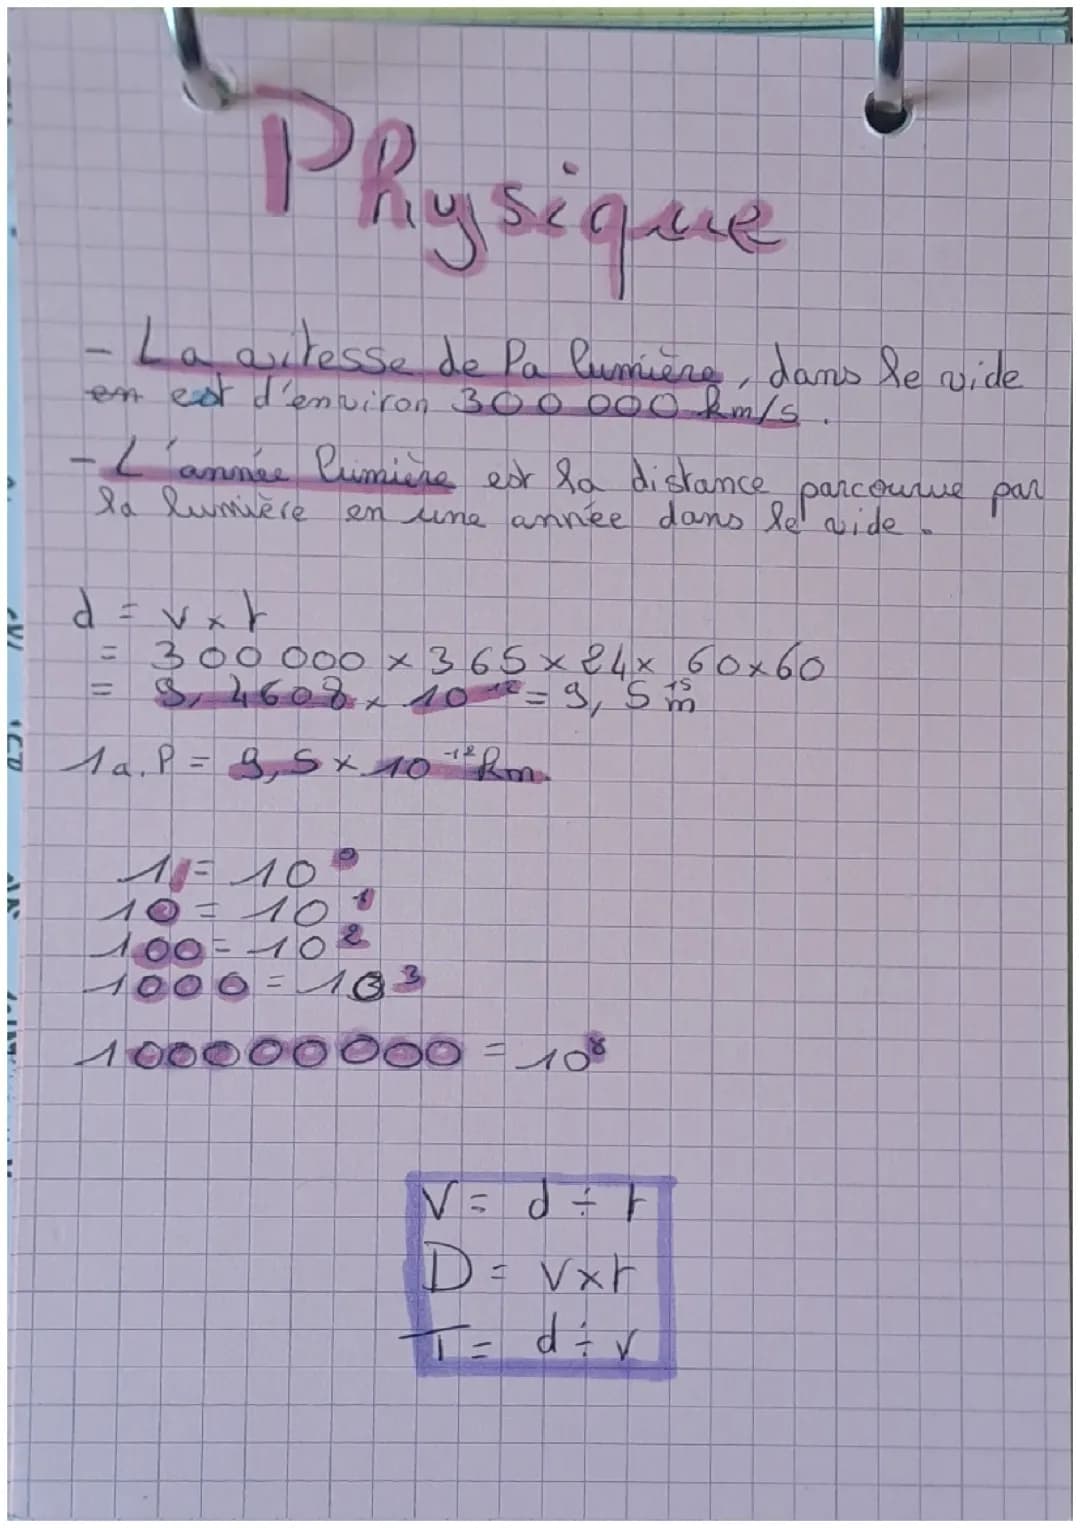 Physique
- La vitesse de la lumière, dans le vide
en est d'environ 300 000 km/s.
- L'année lumière est la distance parcourue par
la lumière en une année dans le vide.
d = v x t
= 300 000 x 365 x 24 x 60 x 60
= 9,4608 x 10⁻¹² = 9,5 ¹⁵m
1 a.l = 9,5 x 10⁻¹² km
1 = 10⁰
10 = 10¹
100 = 10²
1000 = 10³
100000000 = 10⁸
V = d ÷ t
D = v x t
T = d ÷ v